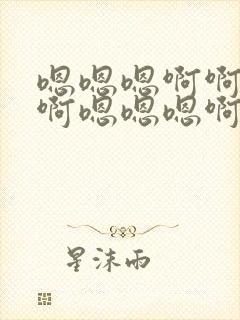 嗯嗯嗯啊啊
啊嗯嗯嗯啊
星沫雨